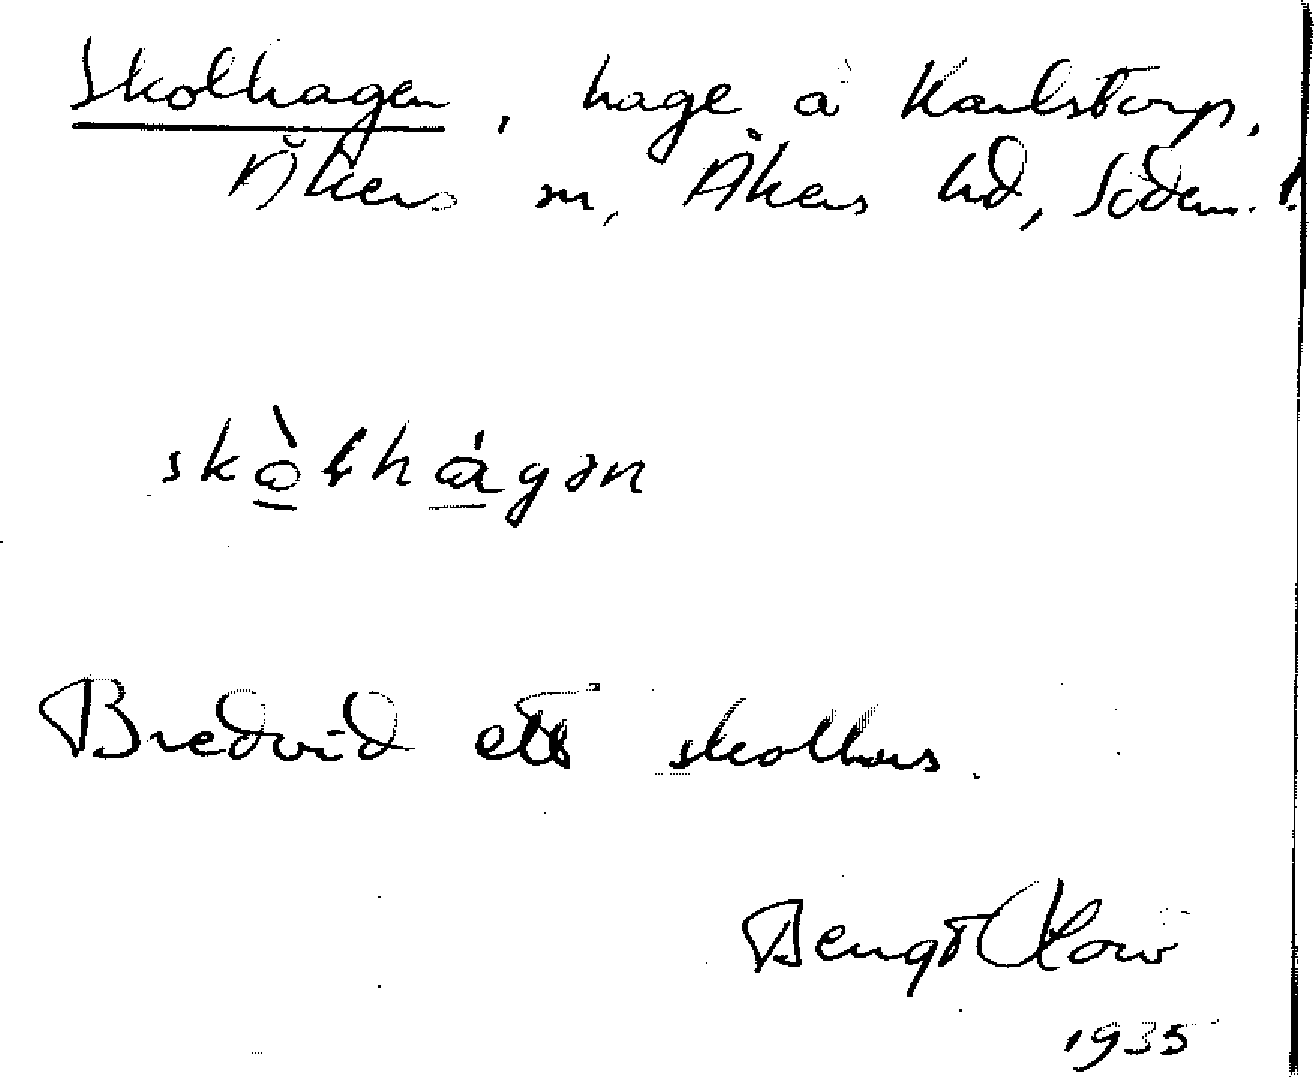 Skolhagen, hage å Karlstorp,
Åkers sn, Åkers hd, Söderm. l.
skò̠lhá̠gən
Bredvid ett skolhus.
Bengt
1935